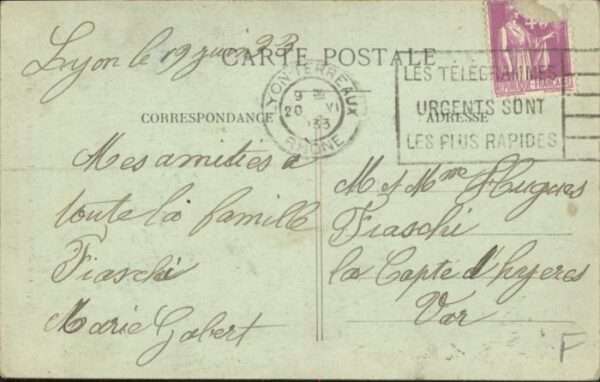 Lyon le 19 juin 33
CARTE POSTALE
LYON TERREAUX
9
20 VI
33
RHÔNE
LES TÉLÉGRAMMES
URGENTS SONT
LES PLUS RAPIDES
CORRESPONDANCE
ADRESSE
Mes amitiés a
toute la famille
Fiaschi
Marie Gobert
M et Mme Hugues
Fiaschi
la Capte d'hyeres
Var
F